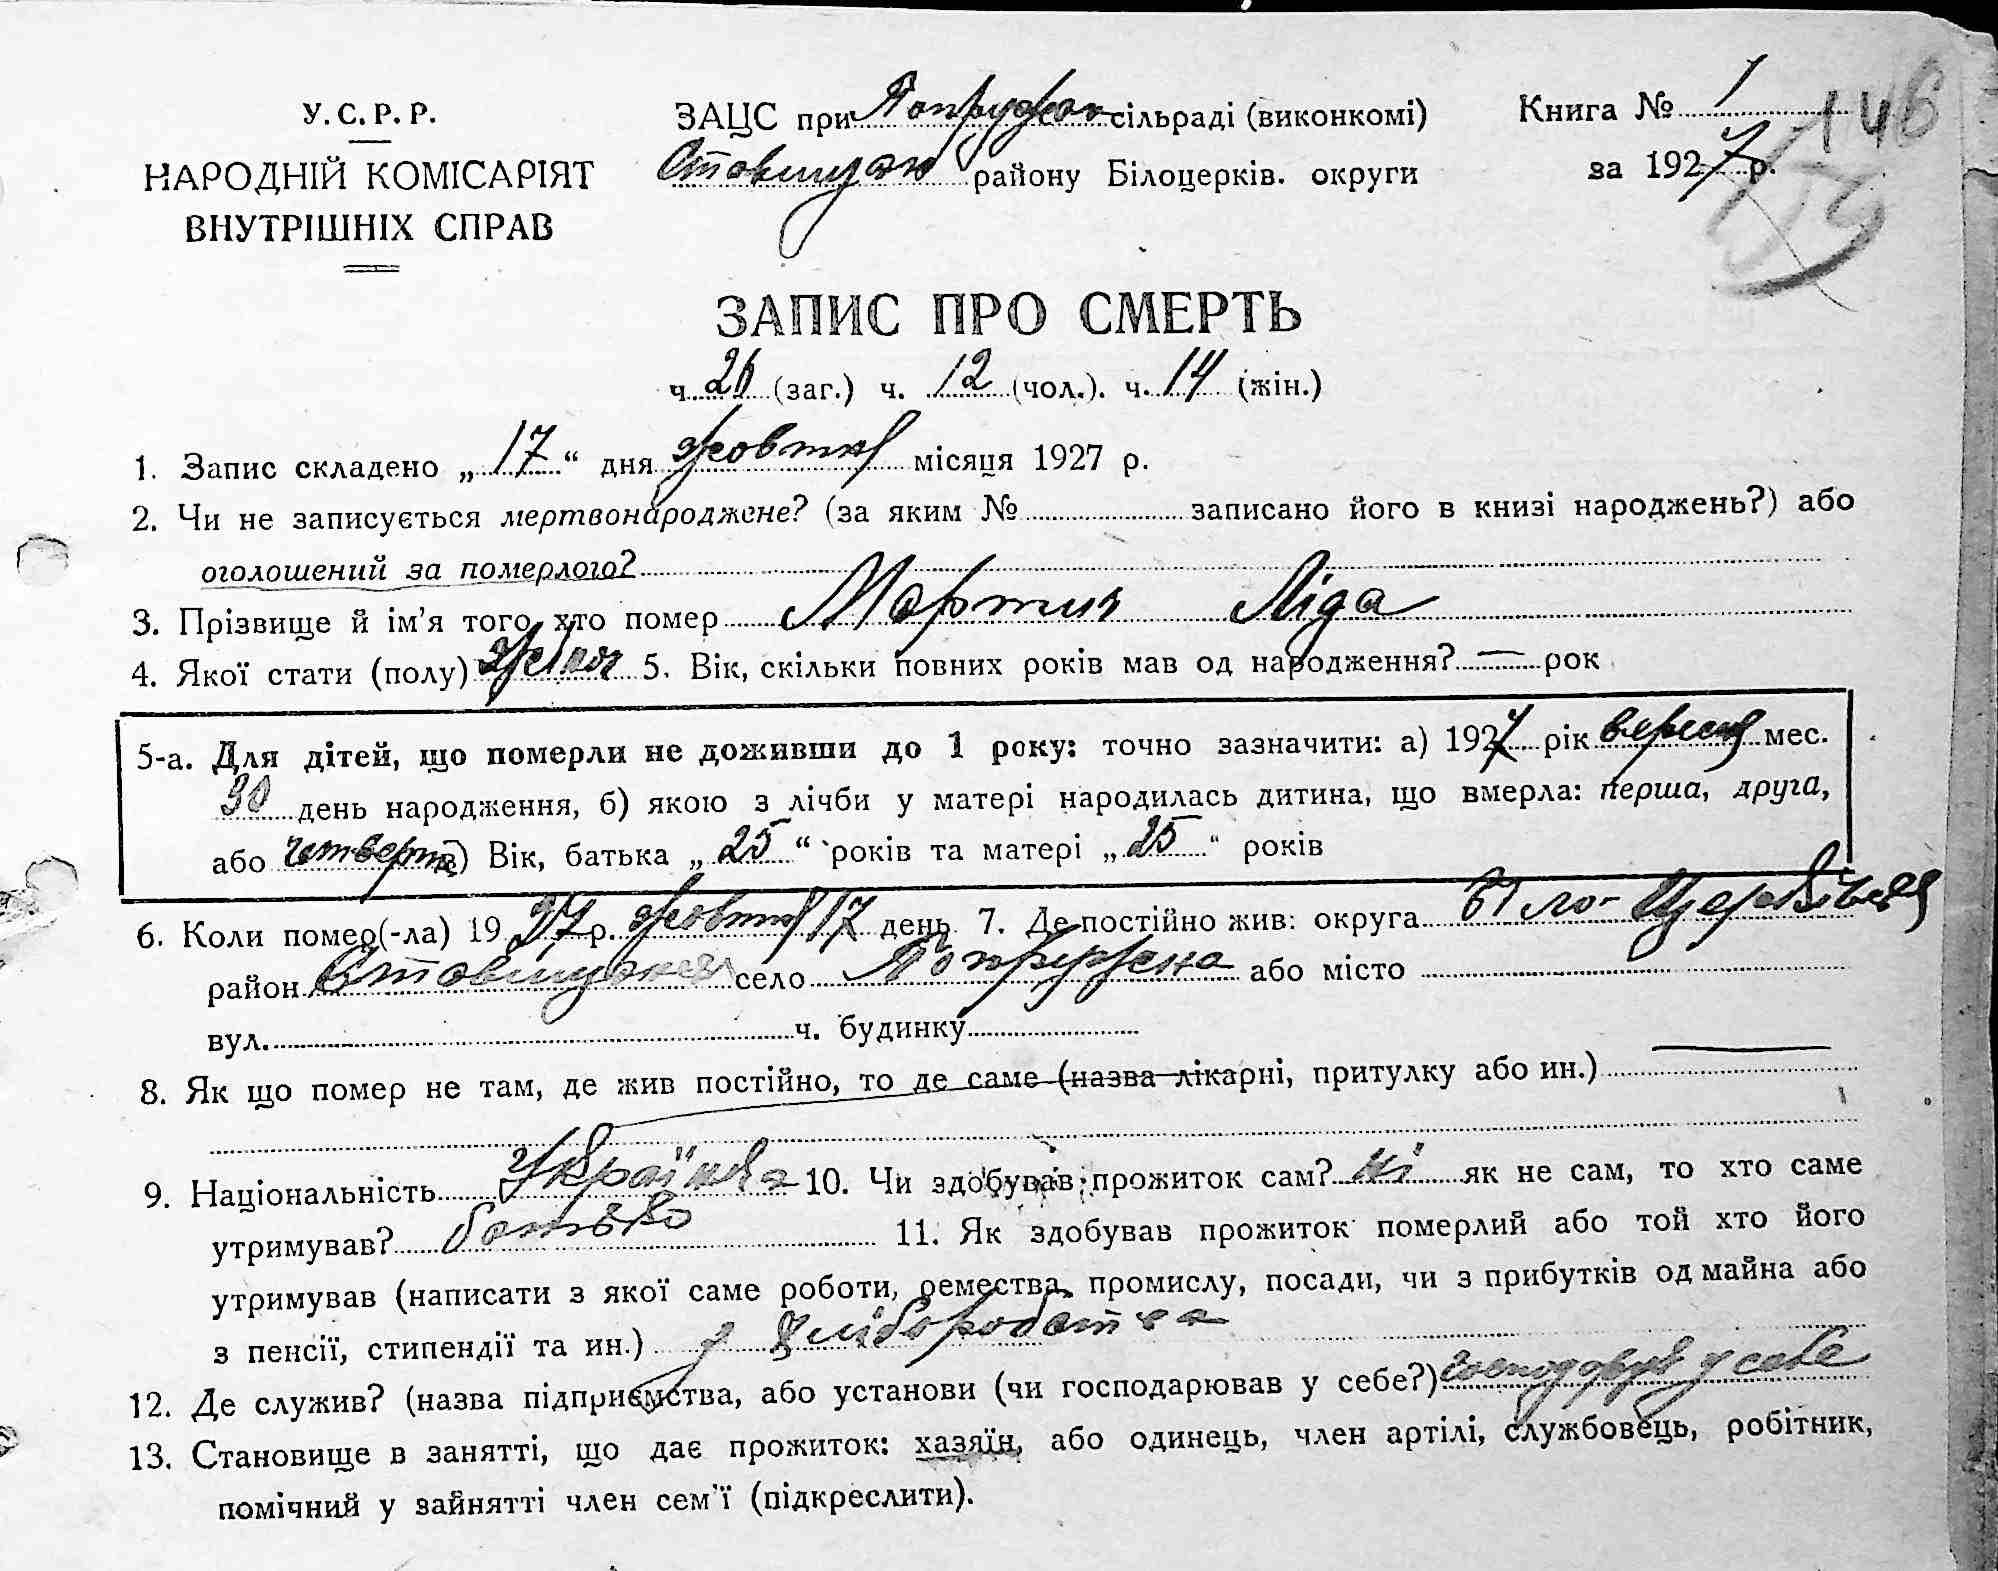 У.С.Р.Р.
НАРОДНІЙ КОМІСАРІЯТ
ВНУТРІШНІХ СПРАВ
ЗАЦС при Попружен сільраді (виконкомі)
Ставищан району Білоцерків. округи
Книга № 1
146
за 1927 р.
ЗАПИС ПРО СМЕРТЬ
ч. 26 (заг.) ч. 12 (чол.). ч. 14 (жін.)
1. Запис складено „17“ дня жовтня місяця 1927 р.
2. Чи не записується мертвонароджене? (за яким № записано його в книзі народжень?) або
оголошений за померлого?
3. Прізвище й ім'я того, хто помер Мартин Ліда
4. Якої стати (полу) жіноч 5. Вік, скільки повних років мав од народження? — рок
5-а. Для дітей, що померли не доживши до 1 року: точно зазначити: а) 1927 рік вересня мес.
30 день народження, б) якою з лічби у матері народилась дитина, що вмерла: перша, друга,
або четверта в) Вік, батька „25“ років та матері „25“ років
6. Коли помер(-ла) 1927 р. жовтня 17 день 7. Де постійно жив: округа Біло-Церківська
район Ставищанський село Попружна або місто
вул. ч. будинку
8. Як що помер не там, де жив постійно, то де саме (назва лікарні, притулку або ин.) —
9. Національність Українка 10. Чи здобував прожиток сам? ні як не сам, то хто саме
утримував? батько 11. Як здобував прожиток померлий або той хто його
утримував (написати з якої саме роботи, ремества, промислу, посади, чи з прибутків од майна або
з пенсії, стипендії та ин.) з хліборобства
12. Де служив? (назва підприємства, або установи (чи господарював у себе?) господарує у себе
13. Становище в занятті, що дає прожиток: хазяїн, або одинець, член артілі, службовець, робітник,
помічний у зайнятті член сем'ї (підкреслити).